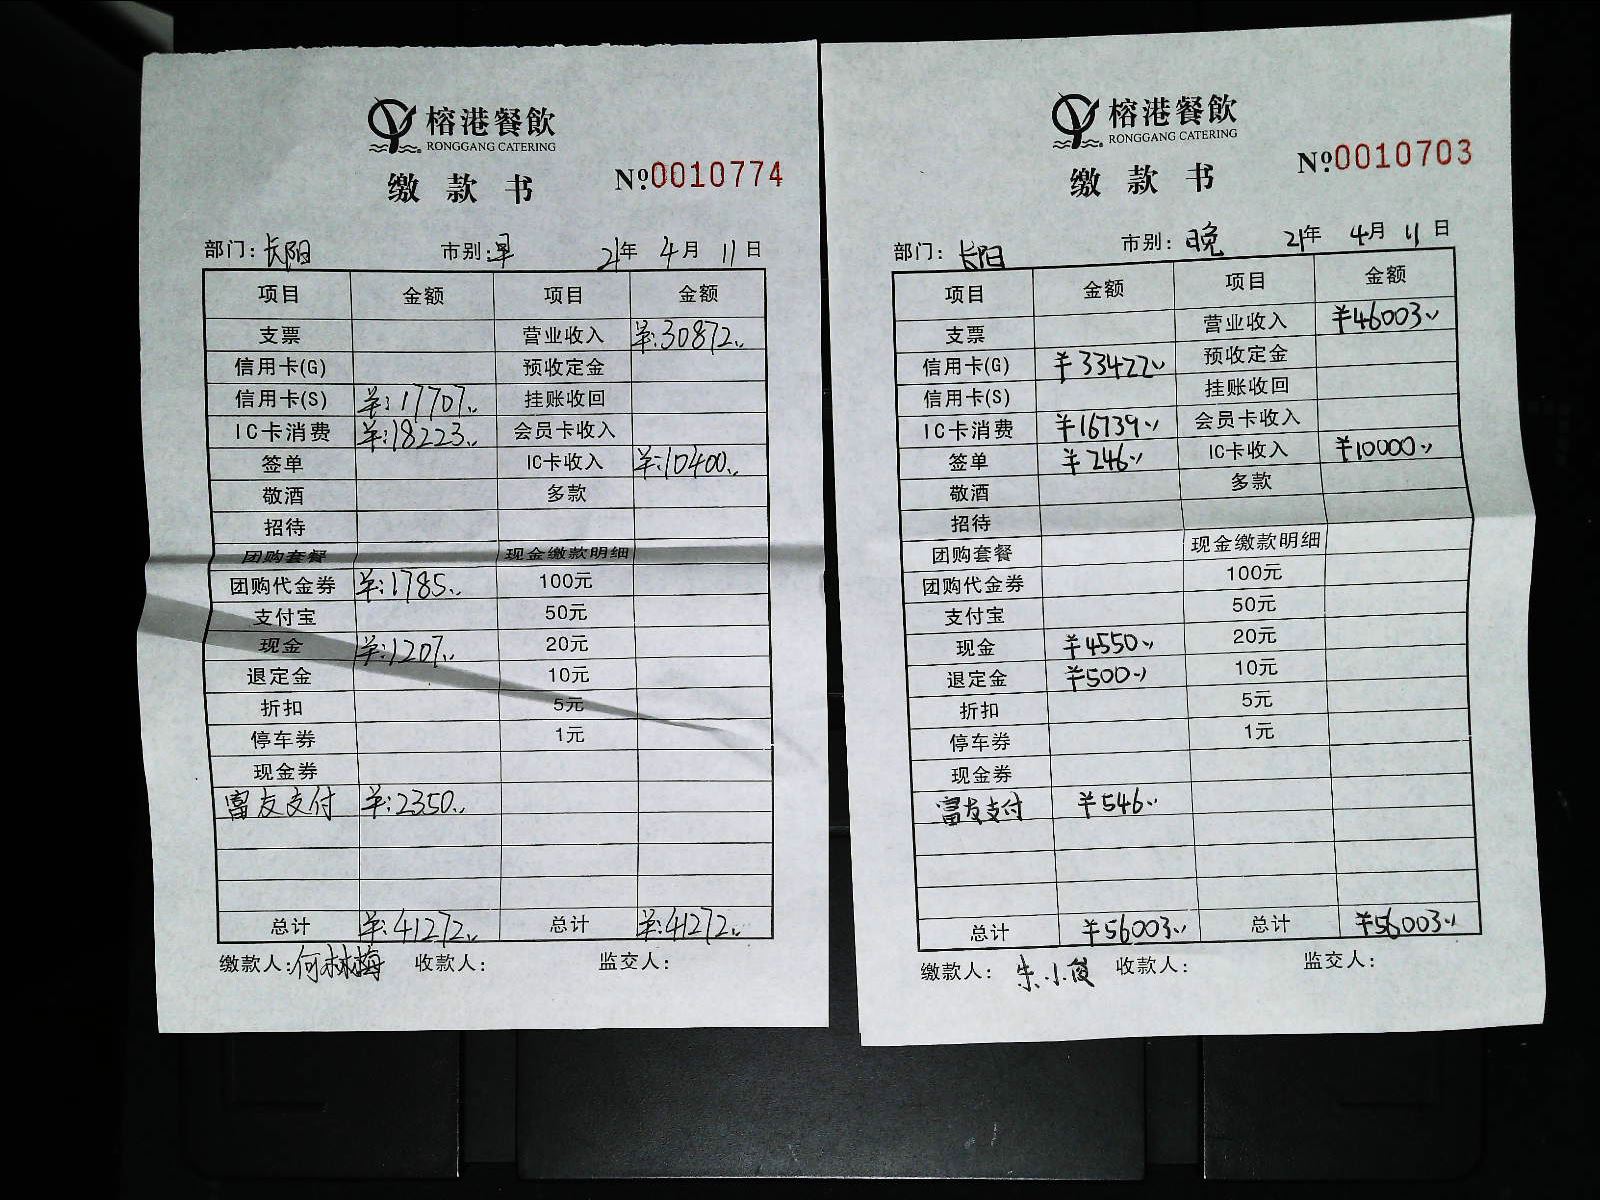 榕港餐飲
RONGGANG CATERING
缴款书
№0010774
部门：长阳 市别：早 21年 4月 11日
项目 金额 项目 金额
支票 营业收入 ¥:30872..
信用卡(G) 预收定金
信用卡(S) ¥:17707.. 挂账收回
IC卡消费 ¥:18223.. 会员卡收入
签单 IC卡收入 ¥:10400..
敬酒 多款
招待
团购套餐 现金缴款明细
团购代金券 ¥:1785.. 100元
支付宝 50元
现金 ¥:1207.. 20元
退定金 10元
折扣 5元
停车券 1元
现金券
富友支付 ¥:2350..
总计 ¥:41272.. 总计 ¥:41272..
缴款人：何林梅 收款人： 监交人：
榕港餐飲
RONGGANG CATERING
缴款书
№0010703
部门：长阳 市别：晚 21年 4月 11日
项目 金额 项目 金额
支票 营业收入 ¥46003..
信用卡(G) ¥33422.. 预收定金
信用卡(S) 挂账收回
IC卡消费 ¥16739.. 会员卡收入
签单 ¥246.. IC卡收入 ¥10000..
敬酒 多款
招待
团购套餐 现金缴款明细
团购代金券 100元
支付宝 50元
现金 ¥4550.. 20元
退定金 ¥500.. 10元
折扣 5元
停车券 1元
现金券
富友支付 ¥546..
总计 ¥56003.. 总计 ¥56003..
缴款人：朱小俊 收款人： 监交人：